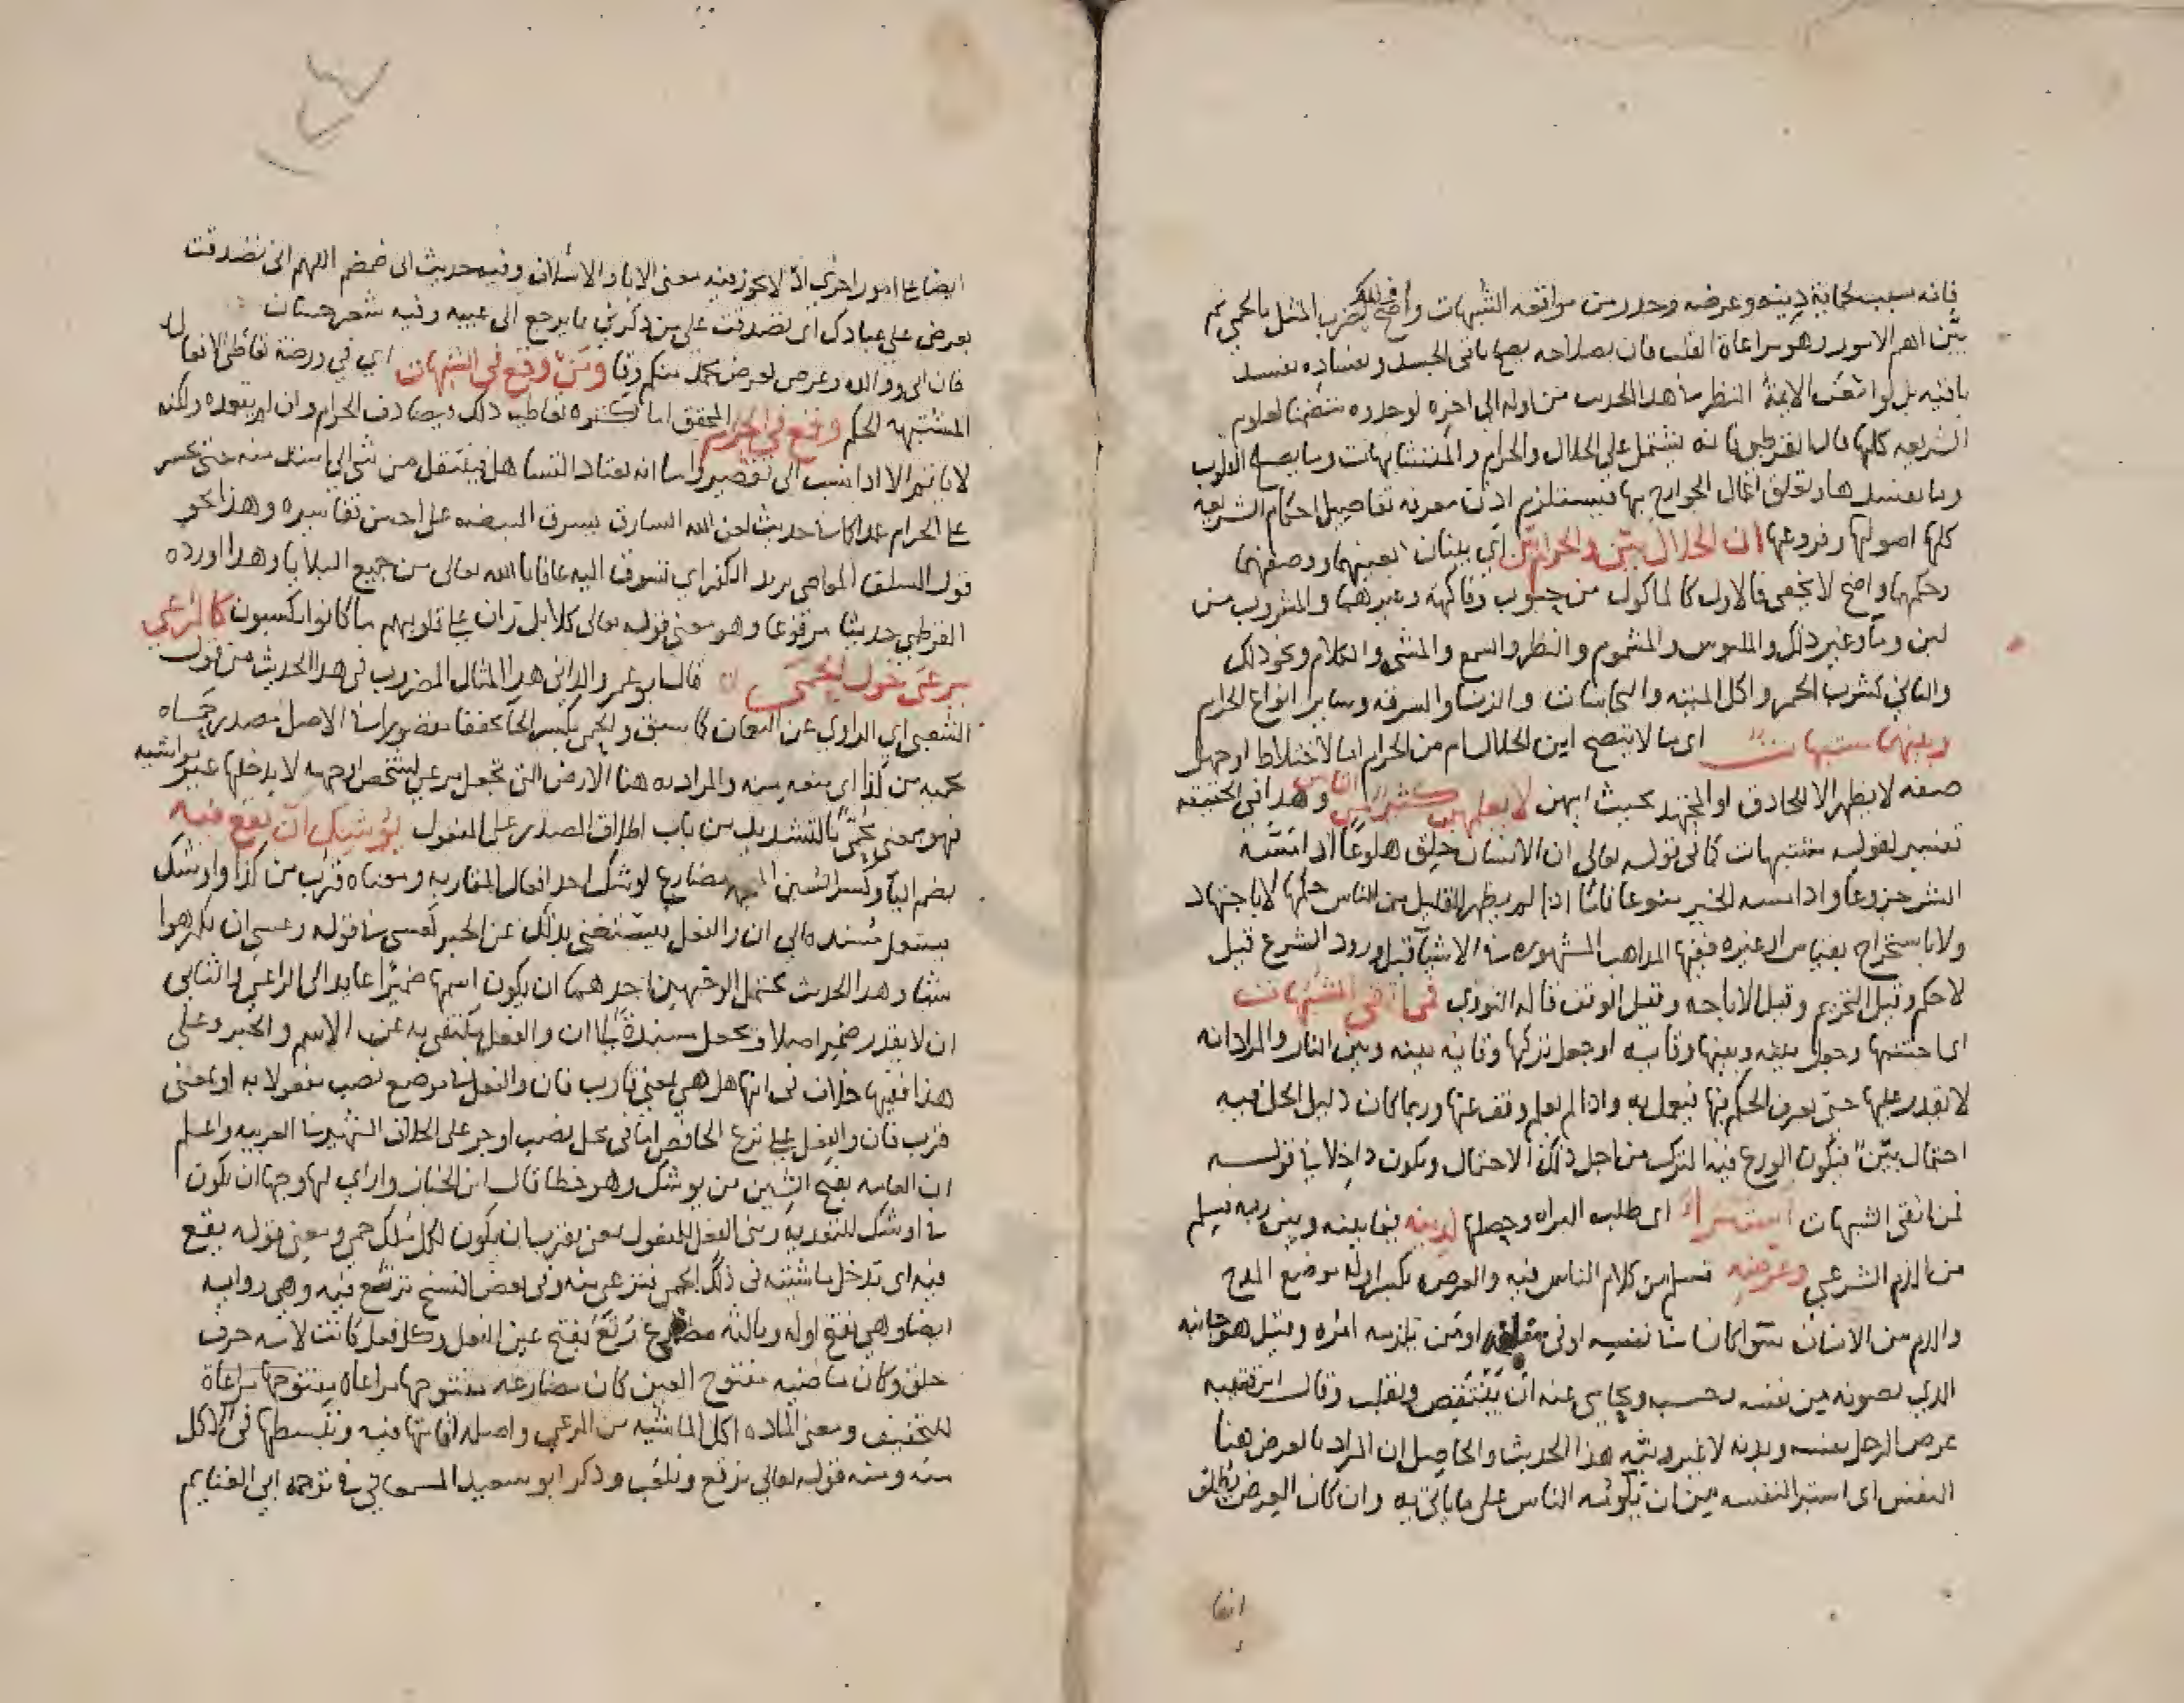 فانه سبب لحماية دينه وعرضه وحذر من مواقعة الشبهات واوضح ذلك بضرب المثل بالحمى ثم
بيّن اهم الامور وهو مراعاة القلب فان بصلاحه يصلح باقي الجسد وبفساده يفسد
باقيه بل لو امعن الايمة النظر في هذا الحديث من اوله الى اخره لوجدوه متضمنا لعلوم
الشريعه كلها قال القرطبي فانه يشتمل على الحلال والحرام والمتشابهات وما يصلح القلوب
وما يفسدها وتعلق اعمال الجوارح بها فيستلزم اذن معرفة تفاصيل احكام الشريعه
كلها اصولها وفروعها ان الحلال بيّن والحرام بيّن اي بينان بعينهما ووصفهما
وحكمهما واضح لا يخفى فالاول كالماكول من حبوب وفاكهة وغيرهما والمشروب من
لبن وماء وغير ذلك والملبوس والمشموم والنظر والسمع والمشي والكلام ونحو ذلك
والثاني كشرب الخمر واكل الميتة والنجاسات والزنا والسرقة وساير انواع الحرام
وبينهما مشبهات اي ما لا يتضح اين الحلال ام من الحرام اما لاختلاط او جهل
صفه لا يظهر الا للحاذق او المجتهد بحيث ابهن لا يعلمهن كثير من الناس وهذا في الحقيقة
تفسير لقوله مشتبهات كما في قوله تعالى ان الانسان خلق هلوعا اذا مسّه
الشر جزوعا واذا مسه الخير منوعا فاما اذا لم يظهر للقليل من الناس حكمها لا باجتهاد
ولا باستخراج بقياس او غيره ففيها المذاهب المشهوره في الاشياء قبل ورود الشرع قيل
لا حكم وقيل التحريم وقيل الاباحه وقيل الوقف قاله النووي فمن اتقى الشبهات
اي اجتنبها وجعل بينه وبينها وقايه او جعل تركها وقايه بينه وبين النار والمراد انه
لا يقدر عليها حتى يعرف الحكم فيها فيعمل به واذا لم يعلم وقف عنها وربما كان دليل الحل فيه
احتمال بيّن فيكون الورع فيه الترك من اجل ذلك الاحتمال ويكون داخلا في قوله
فمن اتقى الشبهات استبرأ اي طلب البراه وحصلها لدينه فيما بينه وبين ربه فيسلم
من الذم الشرعي وعرضه فيسلم من كلام الناس فيه والعرض بكسر اوله موضع المدح
والذم من الانسان سوا كان في نفسه او في سلفه او من يلزمه امره وقيل هو جانبه
الذي يصونه من نفسه وحسبه ويحامي عنه ان يُنتقص ويثلب وقال ابن قتيبه
عرض الرجل نفسه وبدنه لا غير ومنه هذا الحديث والحاصل ان المراد بالعرض هنا
النفس اي استبرا لنفسه من ان يلومه الناس على ما ياتي به وان كان العرض يطلق
ايضا
ايضا على امور اخرى اذ لا يجوز فيه معنى الابا والاسلاف وفيه حديث ابي ضمضم اللهم اني تصدقت
بعرضي على عبادك اي تصدقت على من ذكرني بما يرجع الى عيبه وفيه شعر حسان
فان ابي ووالده وعرضي لعرض محمد منكم وقا ومن وقع في الشبهات اي في ورطة تعاطي الافعال
المشتبهه الحكم وقع في الحرام المحقق اما لكثره تعاطيه ذلك فيصادف الحرام وان لم يتعمده ولكنه
لا ياثم الا اذا نسب الى تقصير واما انه يعتاد التساهل فينتقل من شي الى اشد منه حتى يجسر
على الحرام عمدا كما في حديث لعن الله السارق يسرق البيضه على احسن تفاسيره وهذا نحو
قول السلف المعاصي بريد الكفر اي تسوق اليه عافانا الله تعالى من جميع البلايا وهذا اورده
القرطبي حديثا مرفوعا وهو معنى قوله تعالى كلا بل ران على قلوبهم ما كانوا يكسبون كالراعي
يرعى حول الحمى قال ابو عمرو الداني هذا المثال المضروب في هذا الحديث من قول
الشعبي اي الراوي عن النعمان كما سبق والحمى بكسر الحا مخففا مقصورا في الاصل مصدر حماه
يحميه من كذا اي منعه منه والمراد به هنا الارض التي تجعل مرعى لشخص او جهه لا يدخلها غير مواشيه
فهو بمعنى محميّ بالتشديد من باب اطلاق المصدر على المفعول يوشك ان يقع فيه
بضم الياء وكسر الشين المعجمه مضارع اوشك احد افعال المقاربه ومعناه قرب من كذا واوشك
يستعمل مُسنده الى ان والفعل فيستغنى بذلك عن الخبر كعسى في قوله وعسى ان تكرهوا
شيئا وهذا الحديث يحتمل الوجهين احدهما ان يكون اسمها ضميرا عايدا الى الراعي والثاني
ان لا يقدر ضمير اصلا ويجعل مسندة الى ان والفعل يكتفى به عن الاسم والخبر وعلى
هذا ففيها خلاف في انها هل هي بمعنى قارب فان والفعل في موضع نصب مفعولا به او بمعنى
قرب فان والفعل على نزع الخافض اما في محل نصب او جر على الخلاف الشهير في العربيه واعلم
ان العامه بفتح الشين من يوشك وهو خطا قال ابن الخباز وارى لها وجها ان يكون
في اوشك للتعديه وبني الفعل للمفعول بمعنى يقرب ان يكون لكل ملك حمى ومعنى قوله يقع
فيه اي تدخل ماشيته في ذلك الحمى فترعى منه وفي بعض النسخ ترتع فيه وهي روايه
ايضا وهي بفتح اوله وثالثه مضارع رتع بفتح عين الفعل وكل فعل كانت لامه حرف
حلق وكان ماضيه مفتوح العين كان مضارعه مفتوحها مراعاة
للتخفيف ومعنى الماده اكل الماشيه من المرعى واصله اقامتها فيه وتبسطها في الاكل
منه ومنه قوله تعالى يرتع ويلعب وذكر ابو سعيد السمعاني في ترجمة ابي الغنايم